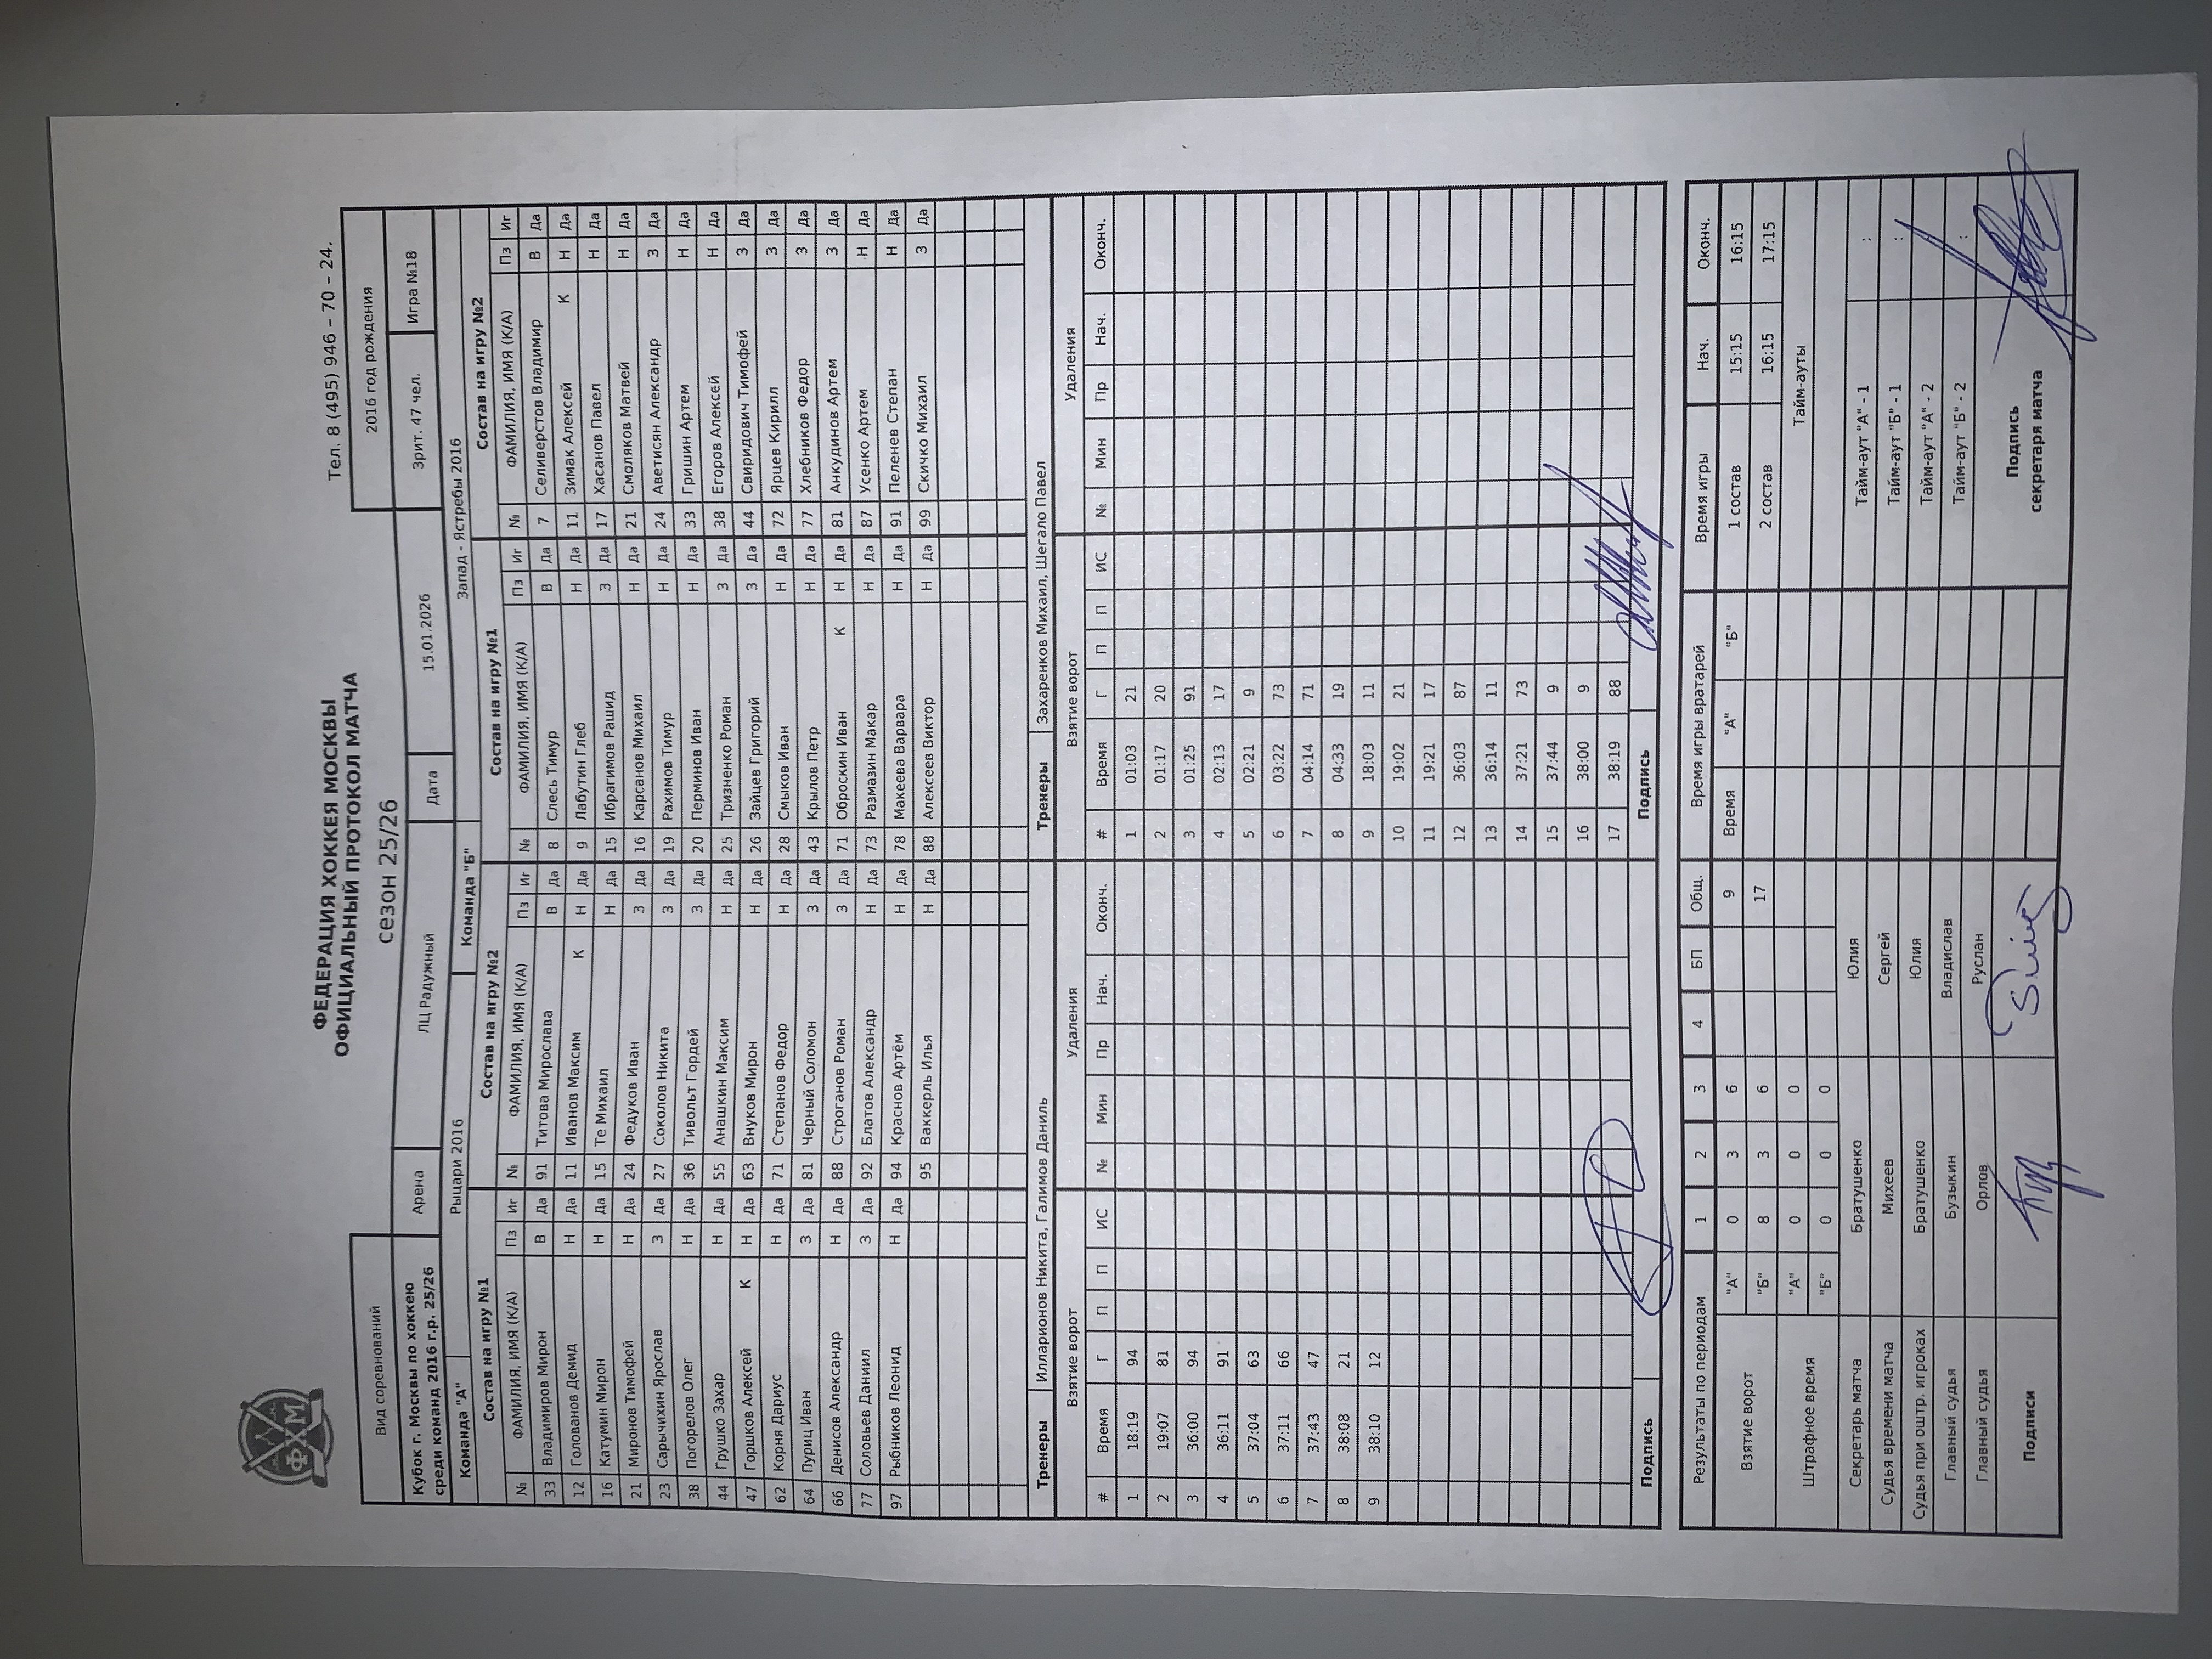 ФХМ
ФЕДЕРАЦИЯ ХОККЕЯ МОСКВЫ
ОФИЦИАЛЬНЫЙ ПРОТОКОЛ МАТЧА
Тел. 8 (495) 946 – 70 – 24.
сезон 25/26
Вид соревнований 2016 год рождения
Кубок г. Москвы по хоккею среди команд 2016 г.р. 25/26 Арена ЛЦ Радужный Дата 15.01.2026 Зрит. 47 чел. Игра №18
Команда "А" Рыцари 2016 Команда "Б" Запад - Ястребы 2016
Состав на игру №1 Состав на игру №2 Состав на игру №1 Состав на игру №2
№ ФАМИЛИЯ, ИМЯ (К/А) Пз Иг № ФАМИЛИЯ, ИМЯ (К/А) Пз Иг № ФАМИЛИЯ, ИМЯ (К/А) Пз Иг № ФАМИЛИЯ, ИМЯ (К/А) Пз Иг
33 Владимиров Мирон В Да 91 Титова Мирослава В Да 8 Слесь Тимур В Да 7 Селиверстов Владимир В Да
12 Голованов Демид Н Да 11 Иванов Максим К Н Да 9 Лабутин Глеб Н Да 11 Зимак Алексей К Н Да
16 Катумин Мирон Н Да 15 Те Михаил Н Да 15 Ибрагимов Рашид З Да 17 Хасанов Павел Н Да
21 Миронов Тимофей Н Да 24 Федуков Иван З Да 16 Карсанов Михаил Н Да 21 Смоляков Матвей Н Да
23 Сарычихин Ярослав З Да 27 Соколов Никита З Да 19 Рахимов Тимур Н Да 24 Аветисян Александр З Да
38 Погорелов Олег Н Да 36 Тивольт Гордей З Да 20 Перминов Иван Н Да 33 Гришин Артем Н Да
44 Грушко Захар Н Да 55 Анашкин Максим Н Да 25 Тризненко Роман З Да 38 Егоров Алексей Н Да
47 Горшков Алексей К Н Да 63 Внуков Мирон Н Да 26 Зайцев Григорий З Да 44 Свиридович Тимофей З Да
62 Корня Дариус Н Да 71 Степанов Федор Н Да 28 Смыков Иван Н Да 72 Ярцев Кирилл З Да
64 Пуриц Иван З Да 81 Черный Соломон З Да 43 Крылов Петр Н Да 77 Хлебников Федор З Да
66 Денисов Александр Н Да 88 Строганов Роман З Да 71 Оброскин Иван К Н Да 81 Анкудинов Артем З Да
77 Соловьев Даниил З Да 92 Блатов Александр Н Да 73 Размазин Макар Н Да 87 Усенко Артем Н Да
97 Рыбников Леонид Н Да 94 Краснов Артём Н Да 78 Макеева Варвара Н Да 91 Пеленев Степан Н Да
95 Ваккерль Илья Н Да 88 Алексеев Виктор Н Да 99 Скичко Михаил З Да
Тренеры Илларионов Никита, Галимов Даниль Тренеры Захаренков Михаил, Шегало Павел
Взятие ворот Удаления Взятие ворот Удаления
# Время Г П П ИС № Мин Пр Нач. Оконч. # Время Г П П ИС № Мин Пр Нач. Оконч.
1 18:19 94 1 01:03 21
2 19:07 81 2 01:17 20
3 36:00 94 3 01:25 91
4 36:11 91 4 02:13 17
5 37:04 63 5 02:21 9
6 37:11 66 6 03:22 73
7 37:43 47 7 04:14 71
8 38:08 21 8 04:33 19
9 38:10 12 9 18:03 11
10 19:02 21
11 19:21 17
12 36:03 87
13 36:14 11
14 37:21 73
15 37:44 9
16 38:00 9
17 38:19 88
Подпись Подпись
Результаты по периодам 1 2 3 4 БП Общ. Время игры вратарей Время игры Нач. Оконч.
Взятие ворот "А" 0 3 6 9 Время "А" "Б" 1 состав 15:15 16:15
"Б" 8 3 6 17 2 состав 16:15 17:15
Штрафное время "А" 0 0 0 Тайм-ауты
"Б" 0 0 0
Секретарь матча Братушенко Юлия Тайм-аут "А" - 1 :
Судья времени матча Михеев Сергей Тайм-аут "Б" - 1 :
Судья при оштр. игроках Братушенко Юлия Тайм-аут "А" - 2
Главный судья Бузыкин Владислав Тайм-аут "Б" - 2 :
Главный судья Орлов Руслан
Подписи Подпись секретаря матча